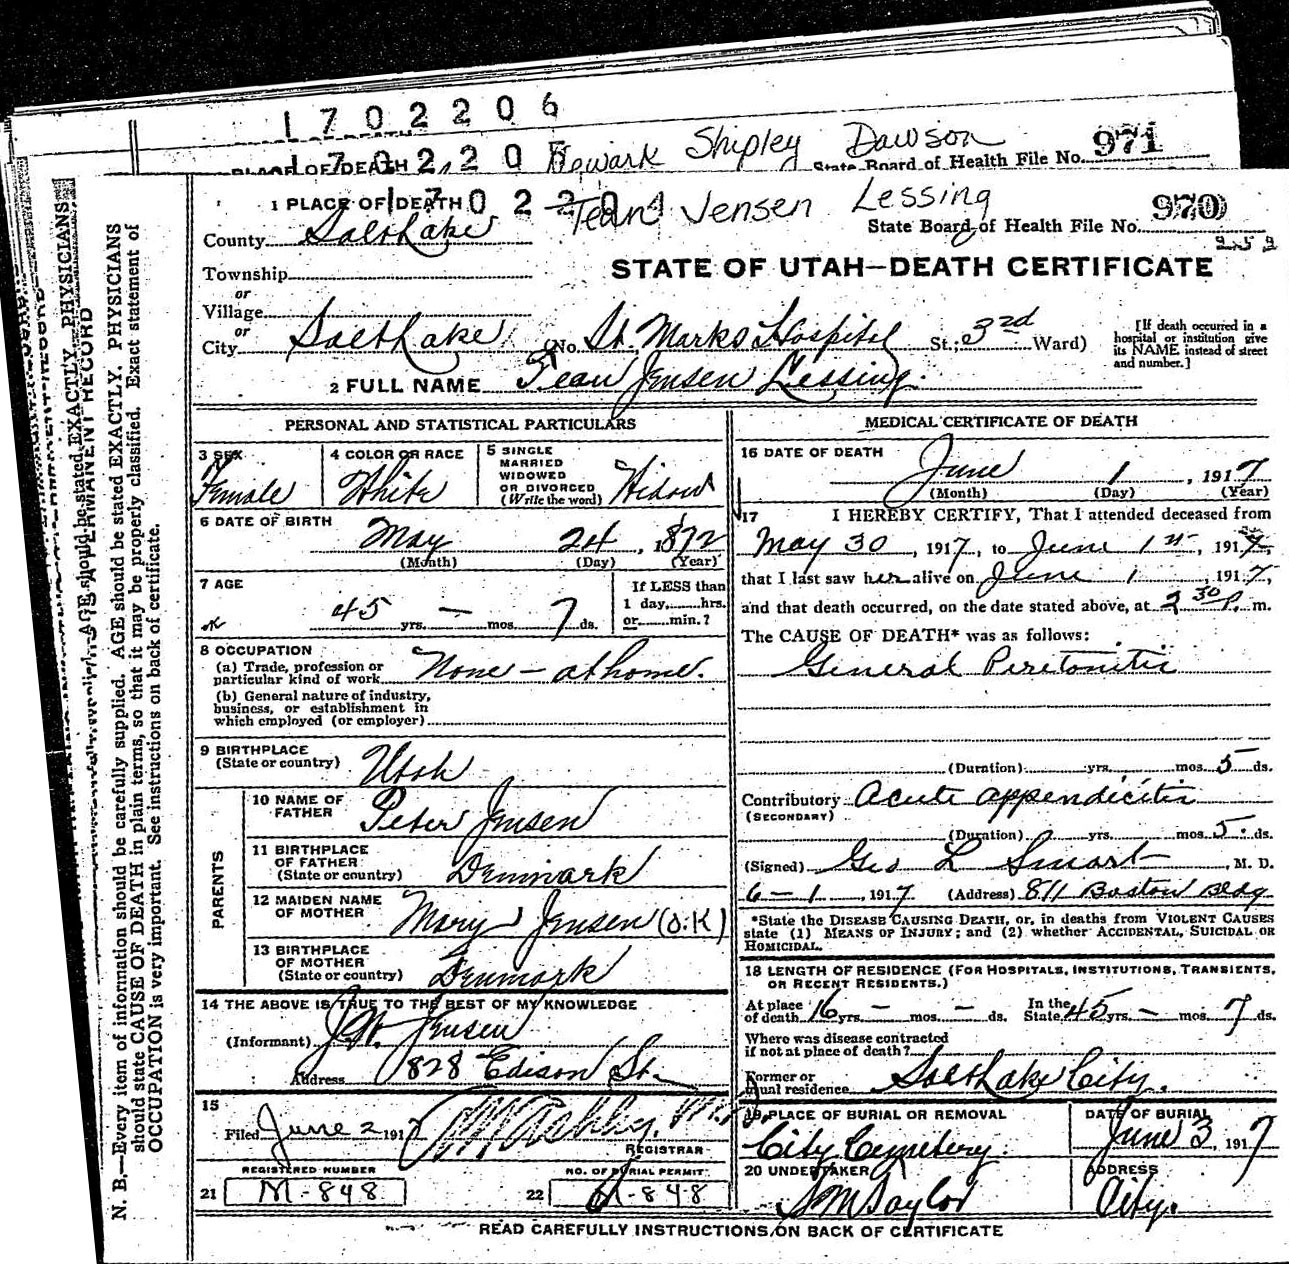 1702206
PLACE OF DEATH 170220 Newark Shipley Dawson State Board of Health File No. 971
1 PLACE OF DEATH 170220 Jean Jensen Lessing 970
State Board of Health File No.
County Salt Lake
259
STATE OF UTAH—DEATH CERTIFICATE
Township
or
Village
or
City Salt Lake (No. St. Marks Hospital St.; 3rd Ward)
[If death occurred in a
hospital or institution give
its NAME instead of street
and number.]
2 FULL NAME Jean Jensen Lessing.
PERSONAL AND STATISTICAL PARTICULARS
3 SEX
Female
4 COLOR OR RACE
White
5 SINGLE
MARRIED
WIDOWED
OR DIVORCED
(Write the word) Widow
6 DATE OF BIRTH
May 24, 1872
(Month) (Day) (Year)
7 AGE
45 yrs. — mos. 7 ds.
If LESS than
1 day, hrs.
or min.?
8 OCCUPATION
(a) Trade, profession or
particular kind of work None – at home.
(b) General nature of industry,
business, or establishment in
which employed (or employer)
9 BIRTHPLACE
(State or country) Utah
PARENTS
10 NAME OF
FATHER Peter Jensen
11 BIRTHPLACE
OF FATHER
(State or country) Denmark
12 MAIDEN NAME
OF MOTHER Mary Jensen (O.K)
13 BIRTHPLACE
OF MOTHER
(State or country) Denmark
14 THE ABOVE IS TRUE TO THE BEST OF MY KNOWLEDGE
(Informant) J. W. Jensen
Address 828 Edison St.
15
Filed June 2 1917 Ashby, M.D.
REGISTRAR
REGISTERED NUMBER NO. OF BURIAL PERMIT
21 M-848 22 M-848
MEDICAL CERTIFICATE OF DEATH
16 DATE OF DEATH
June 1, 1917
(Month) (Day) (Year)
17 I HEREBY CERTIFY, That I attended deceased from
May 30, 1917, to June 1st, 1917,
that I last saw her alive on June 1, 1917,
and that death occurred, on the date stated above, at 2 30 P. m.
The CAUSE OF DEATH* was as follows:
General Peretonitis
(Duration) yrs. mos. 5 ds.
Contributory Acute appendicitis
(SECONDARY)
(Duration) yrs. mos. 5. ds.
(Signed) Geo L Smart, M. D.
6-1, 1917 (Address) 811 Boston Bldg
*State the DISEASE CAUSING DEATH, or, in deaths from VIOLENT CAUSES
state (1) MEANS OF INJURY; and (2) whether ACCIDENTAL, SUICIDAL OR
HOMICIDAL.
18 LENGTH OF RESIDENCE (FOR HOSPITALS, INSTITUTIONS, TRANSIENTS,
OR RECENT RESIDENTS.)
At place
of death 16 yrs. — mos. — ds. In the
State 45 yrs. — mos. 7 ds.
Where was disease contracted
if not at place of death?
Former or
usual residence Salt Lake City.
19 PLACE OF BURIAL OR REMOVAL
City Cemetery.
DATE OF BURIAL
June 3, 1917
20 UNDERTAKER
S M Taylor
ADDRESS
City.
READ CAREFULLY INSTRUCTIONS ON BACK OF CERTIFICATE
N. B.—Every item of information should be carefully supplied. AGE should be stated EXACTLY. PHYSICIANS
should state CAUSE OF DEATH in plain terms, so that it may be properly classified. Exact statement of
OCCUPATION is very important. See instructions on back of certificate.